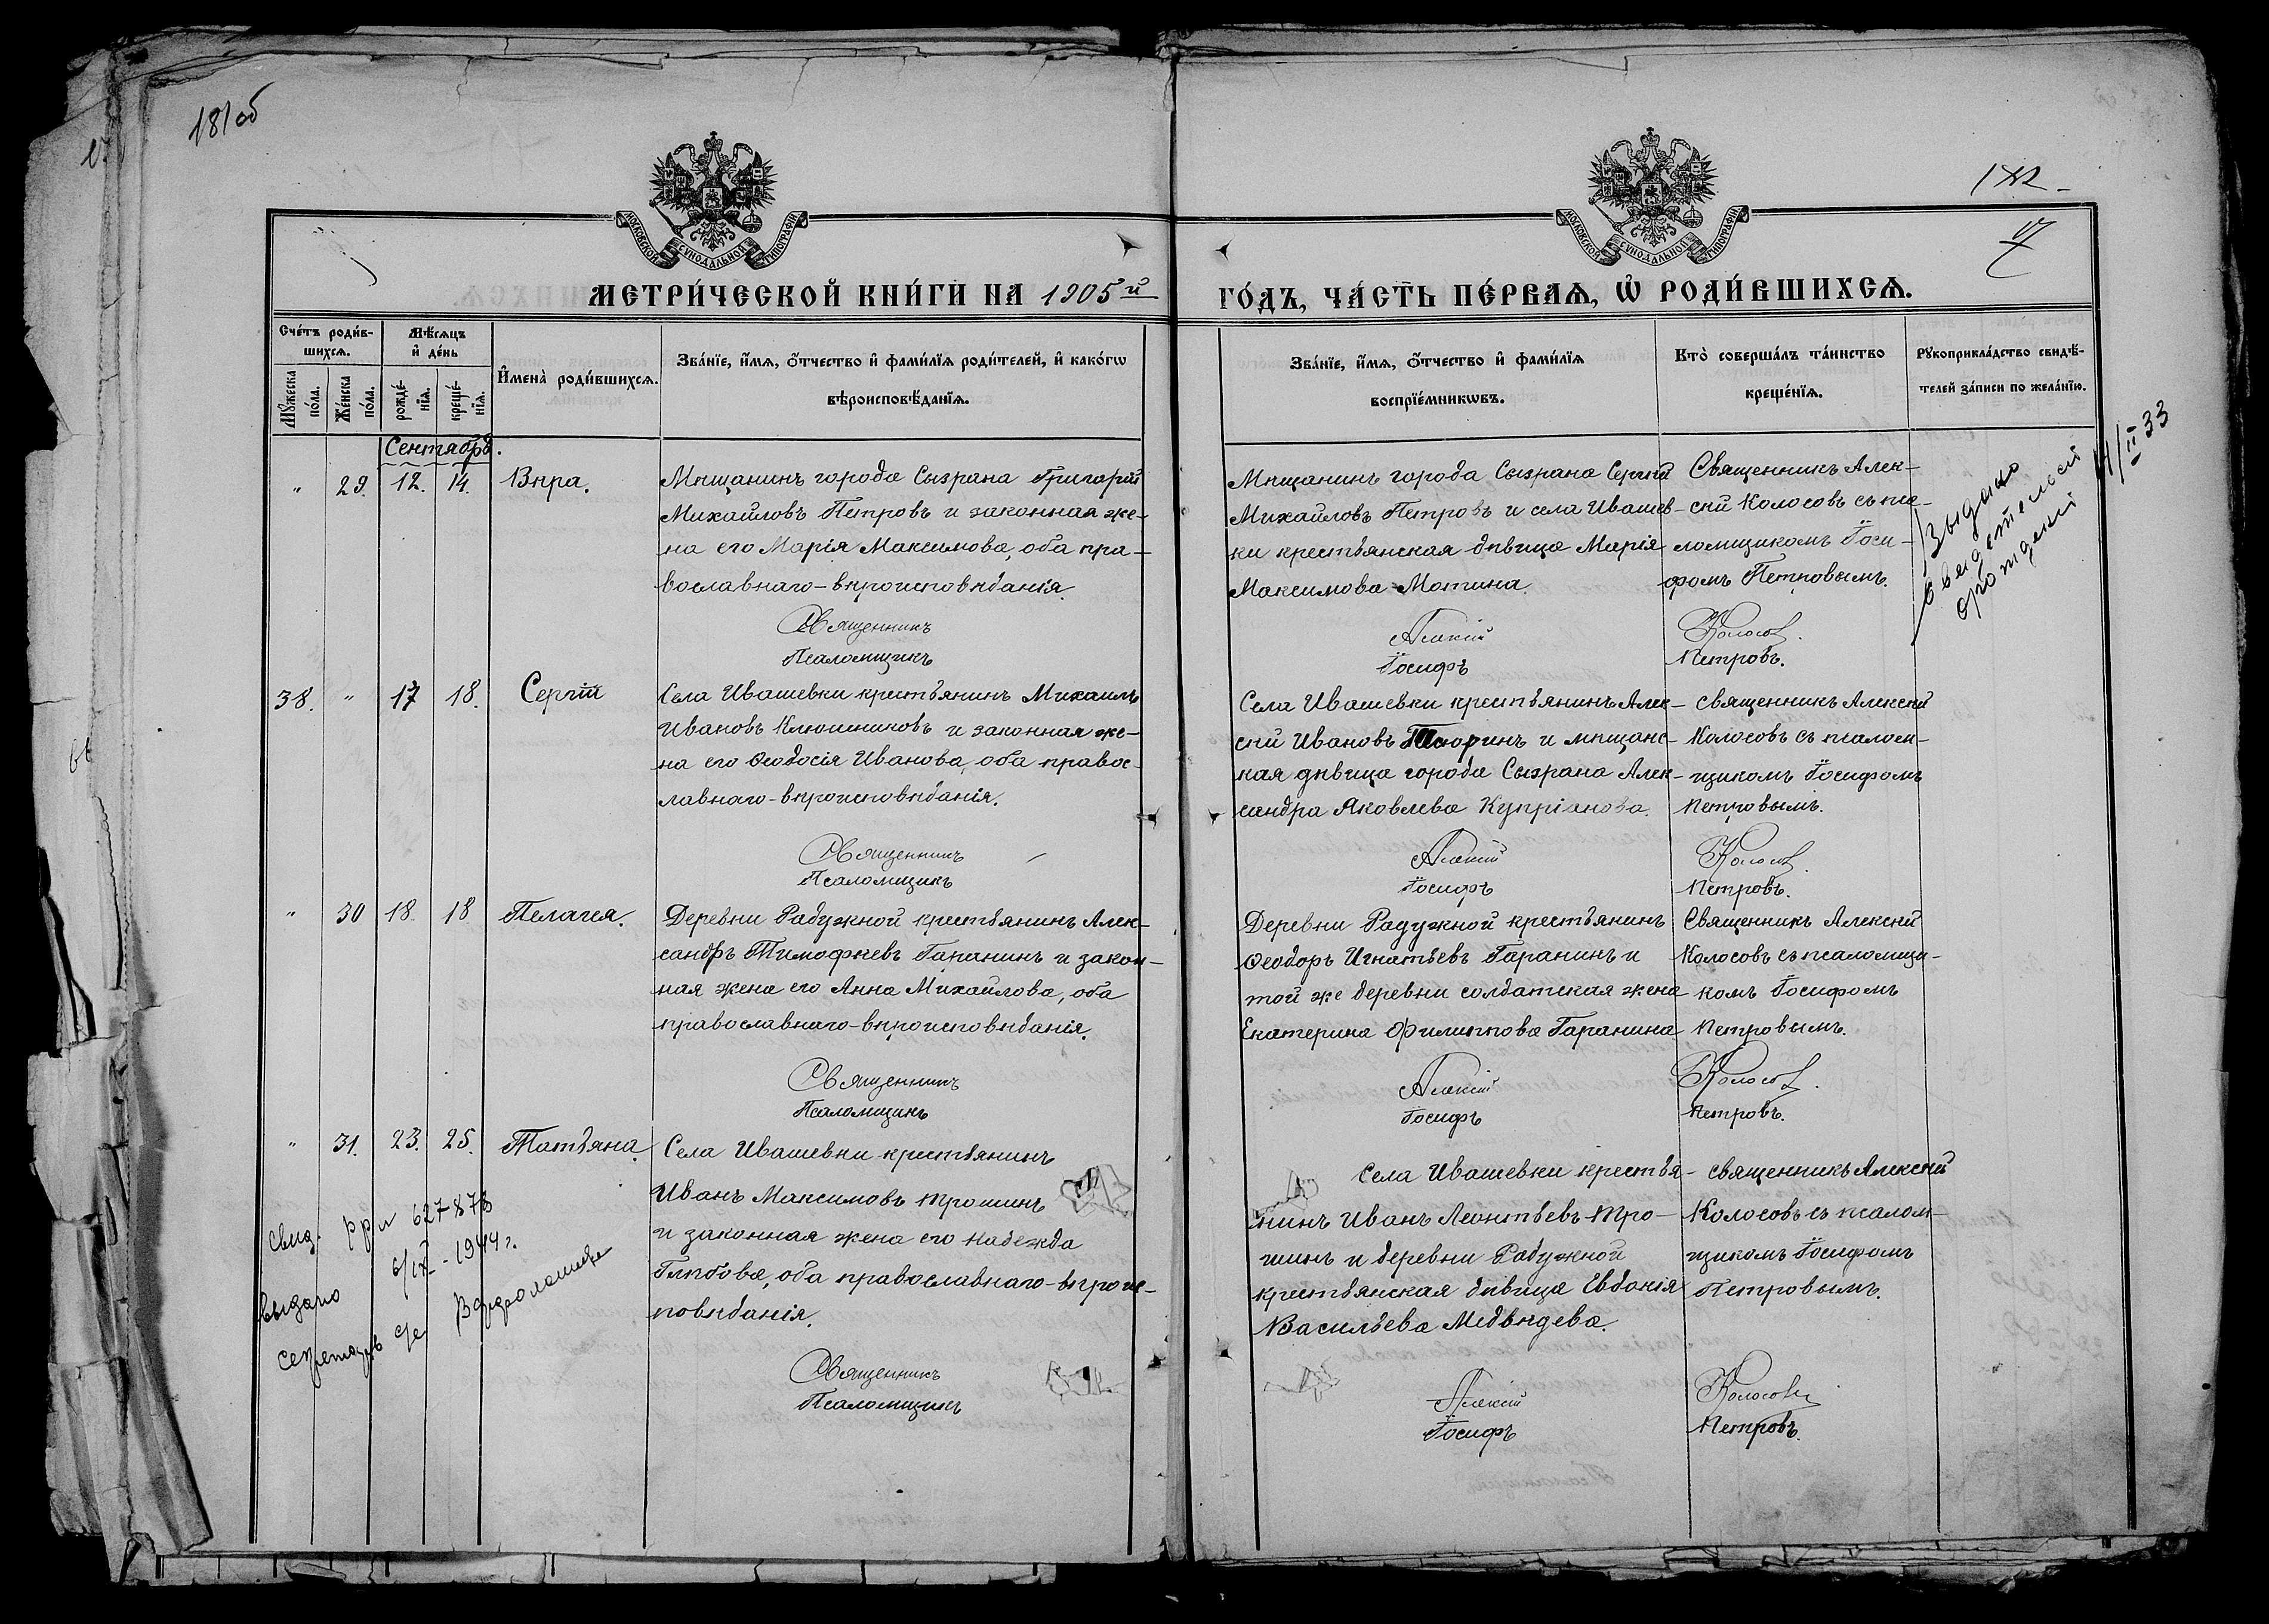 181об
182
МОСКОВСКОЙ СѴНОДАЛЬНОЙ ТИПОГРАФІИ
МОСКОВСКОЙ СѴНОДАЛЬНОЙ ТИПОГРАФІИ
МЕТРИ́ЧЕСКОЙ КНИ́ГИ НА 1905й
ГО́ДЪ, ЧА́СТЬ ПЕ́РВАѦ, Ѡ҆ РОДИ́ВШИХСѦ.
Сче́тъ роди́в-
шихсѧ.
Мѣ́сѧцъ
и҆ де́нь
Мꙋ́жеска
по́ла.
Же́нска
по́ла.
рожде́-
нїѧ.
креще́-
нїѧ.
И҆мена̀ роди́вшихсѧ.
Зва́нїе, и҆́мѧ, ѻ҆́тчество и҆ фами́лїѧ роди́телей, и҆ како́гѡ
вѣроисповѣ́данїѧ.
Зва́нїе, и҆́мѧ, ѻ҆́тчество и҆ фами́лїѧ
воспрїе́мникѡвъ.
Кто̀ соверша́лъ та́инство
креще́нїѧ.
Рꙋкоприкла́дство свидѣ́-
телей за́писи по жела́нїю.
Сентябрь.
" 29. 12. 14. Вѣра.
Мѣщанинъ города Сызрана Григорій
Михайловъ Петровъ и законная же-
на его Марія Максимова, оба пра-
вославнаго-вѣроисповѣданія.
Священникъ
Псаломщикъ
Мѣщанинъ города Сызрана Сергѣй
Михайловъ Петровъ и села Ивашев-
ки крестьянская дѣвица Марія
Максимова Мотина.
Алексій
Іосифъ
Священникъ Алек-
сѣй Колосовъ съ пса-
ломщикомъ Іоси-
фомъ Петровымъ.
Колосов.
Петровъ.
Выдано
свидетелсй
рождений
14/II 33
38. " 17 18. Сергій
Села Ивашевки крестьянинъ Михаилъ
Ивановъ Клюшниковъ и законная же-
на его Ѳеодосія Иванова, оба правос-
лавнаго-вѣроисповѣданія.
Священникъ
Псаломщикъ
Села Ивашевки крестьянинъ Алек-
сѣй Ивановъ Тюринъ и мѣщанс-
кая дѣвица города Сызрана Алек-
сандра Яковлева Купріанова.
Алексій
Іосифъ
священникъ Алексѣй
Колосовъ съ псалом-
щикомъ Іосифомъ
Петровымъ.
Колосов.
Петровъ.
" 30 18. 18 Пелагея.
Деревни Радужной крестьянинъ Алек-
сандръ Тимофѣевъ Гаранинъ и закон-
ная жена его Анна Михайлова, оба
православнаго-вѣроисповѣданія.
Священникъ
Псаломщикъ
Деревни Радужной крестьянинъ
Ѳеодоръ Игнатьевъ Гаранинъ и
той же деревни солдатская жена
Екатерина Филиппова Гаранина
Алексій
Іосифъ
Священникъ Алексѣй
Колосовъ съ псаломщи-
комъ Іосифомъ
Петровымъ.
Колосов.
Петровъ.
" 31. 23. 25. Татьяна.
Села Ивашевки крестьянинъ
Иванъ Максимовъ Трошинъ
и законная жена его Надежда
Глѣбова, оба православнаго-вѣроис-
повѣданія.
Священникъ
Псаломщикъ
Села Ивашевки крестья-
нинъ Иванъ Леонтьевъ Тро-
шинъ и деревни Радужной
крестьянская дѣвица Евдокія
Васильева Медвѣдева.
Алексій
Іосифъ
священникъ Алексѣй
Колосовъ съ псалом-
щикомъ Іосифомъ
Петровымъ.
Колосовъ
Петровъ.
свид.
выдано
6/IX-1944 г.
секретарь с/с